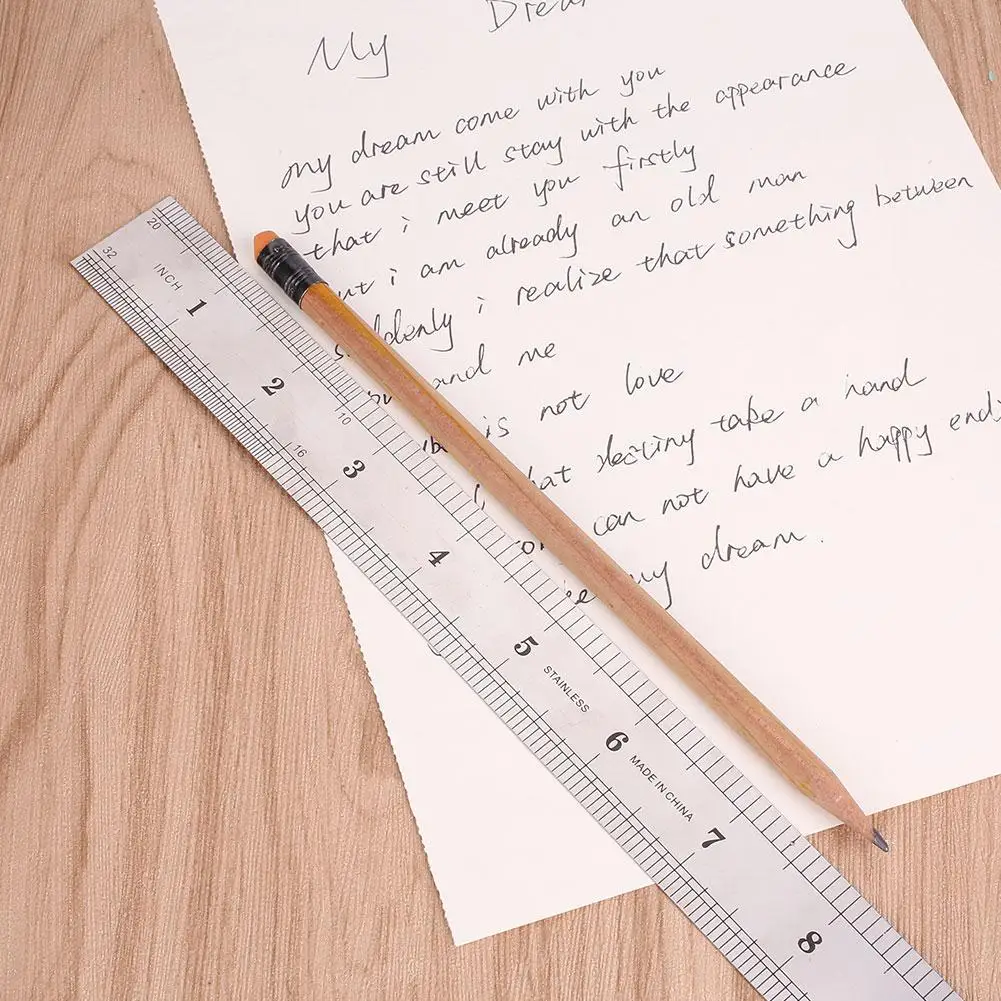 My Dream
my dream come with you
you are still stay with the appearance
that i meet you firstly
but i am already an old man
suddenly i realize that something between
and me
is not love
take a hand
can not have a happy end
my dream.
20
32
INCH
1
2
10
16
3
4
5
STAINLESS
6
MADE IN CHINA
7
8